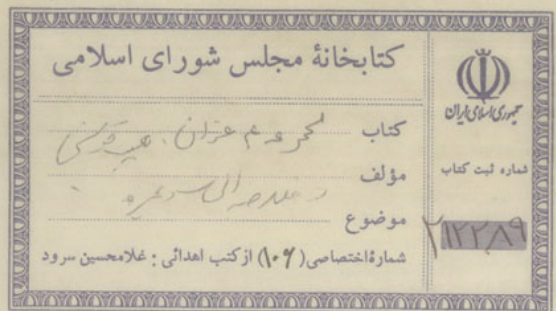 کتابخانهٔ مجلس شورای اسلامی
کتاب مجموعه
مؤلف
موضوع
شمارهٔ اختصاصی (۱۰۶) از کتب اهدائی : غلامحسین سرود
جمهوری اسلامی ایران
شماره ثبت کتاب
۲۱۲۲۸۹